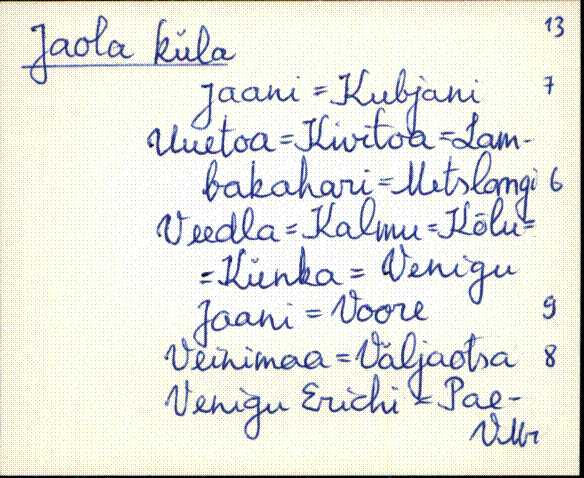 13
Jaola küla
Jaani = Kubjani 7
Uuetoa = Kivitoa = Lam-
bakahari = Metslangi 6
Veedla = Kalmu = Kõlu =
= Künka = Venigu
Jaani = Voore 9
Veinimaa = Väljaotsa 8
Venigu Erichi = Pae-